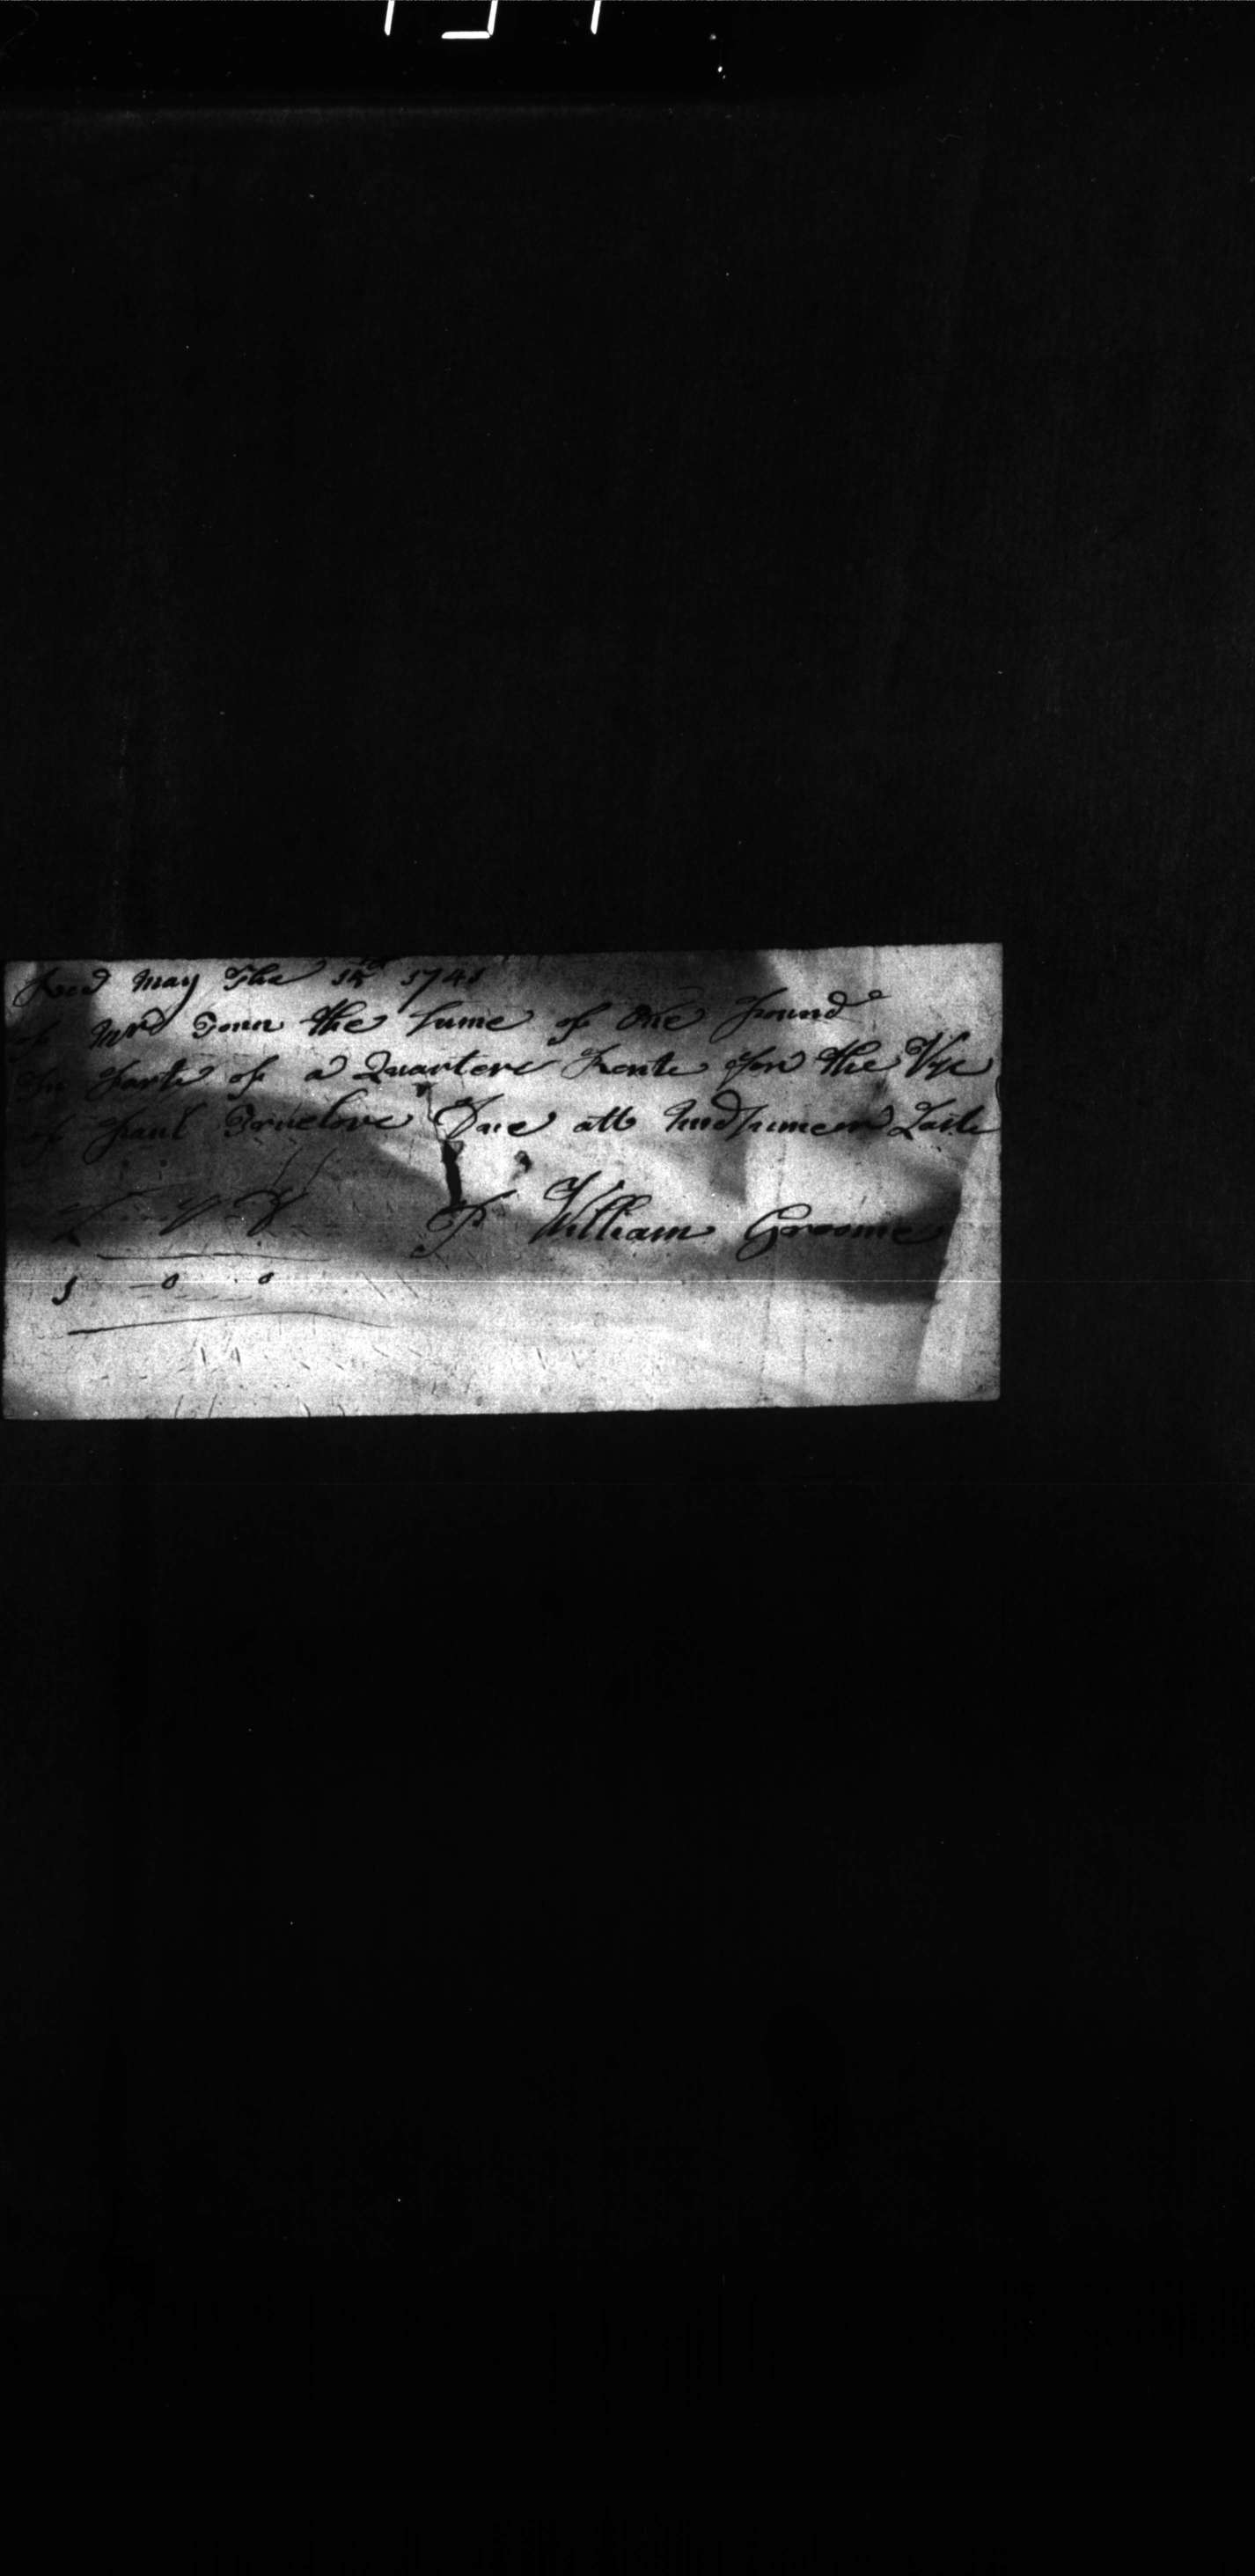 Recd May The 12th 1741
of Mrs Tonn the sume of One Pound
In Parte of a Quarters Rente for the Vse
of Paul Truelove Due att Midsumer Laste
P William Groome
1 - 0 . 0